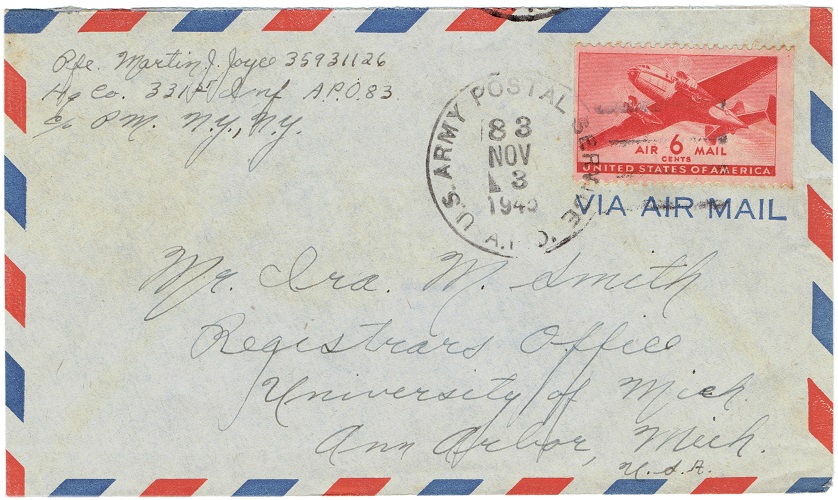 Pfc. Martin J. Joyce 35931126
Hq Co. 331st Inf A.P.O. 83
c/o P.M. N.Y., N.Y.
U.S. ARMY POSTAL SERVICE
A.P.O.
83
NOV
3
1945
AIR 6 MAIL
CENTS
UNITED STATES OF AMERICA
VIA AIR MAIL
Mr. Ira. M. Smith
Registrars Office
University of Mich.
Ann Arbor, Mich.
U.S.A.